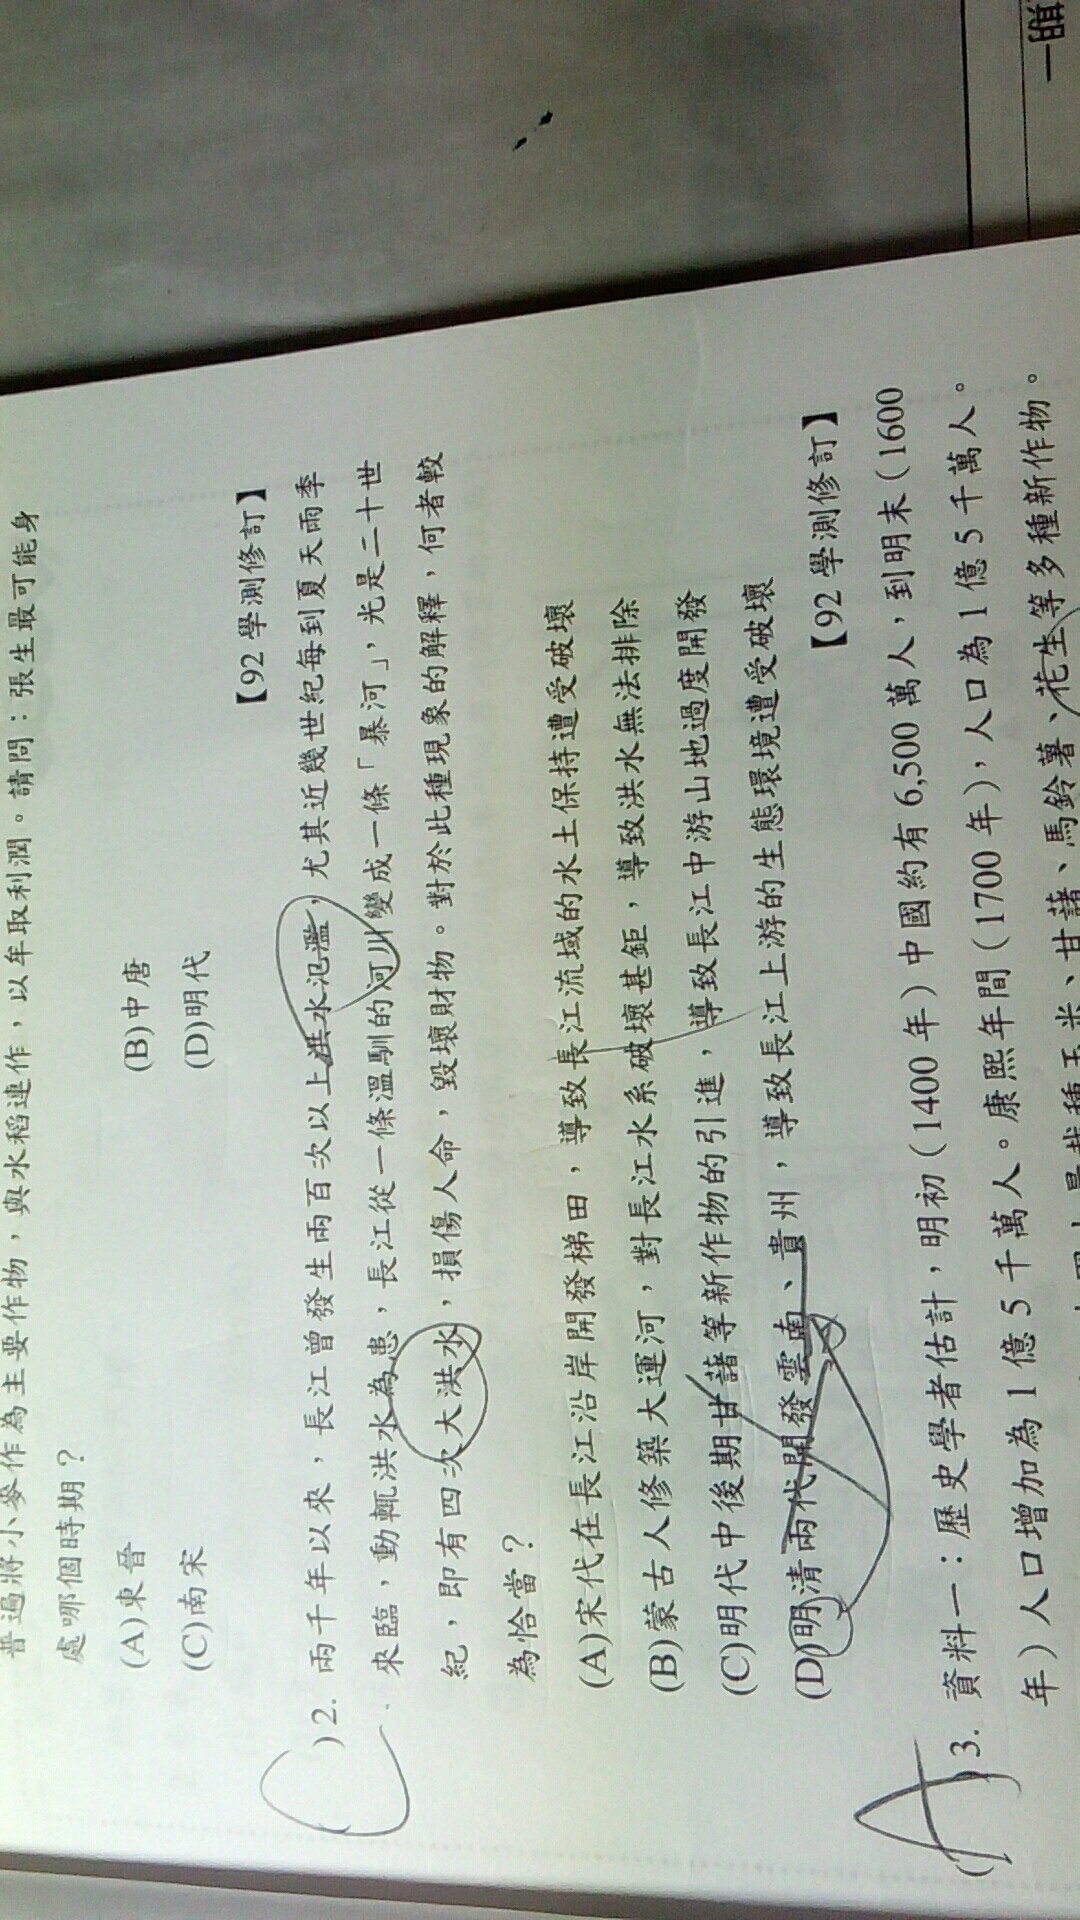 一 期
普遍將小麥作為主要作物，與水稻連作，以牟取利潤。請問：張生最可能身
處哪個時期？
(A)東晉 (B)中唐
(C)南宋 (D)明代
【92 學測修訂】
C )2. 兩千年以來，長江曾發生兩百次以上洪水氾濫，尤其近幾世紀每到夏天雨季
來臨，動輒洪水為患，長江從一條溫馴的河川變成一條「暴河」，光是二十世
紀，即有四次大洪水，損傷人命，毀壞財物。對於此種現象的解釋，何者較
為恰當？
(A)宋代在長江沿岸開發梯田，導致長江流域的水土保持遭受破壞
(B)蒙古人修築大運河，對長江水系破壞甚鉅，導致洪水無法排除
(C)明代中後期甘藷等新作物的引進，導致長江中游山地過度開發
(D)明清兩代開發雲南、貴州，導致長江上游的生態環境遭受破壞
【92 學測修訂】
(A)3. 資料一：歷史學者估計，明初（1400 年）中國約有 6,500 萬人，到明末（1600
年）人口增加為 1 億 5 千萬人。康熙年間（1700 年），人口為 1 億 5 千萬人。
種玉米、甘藷、馬鈴薯、花生等多種新作物。